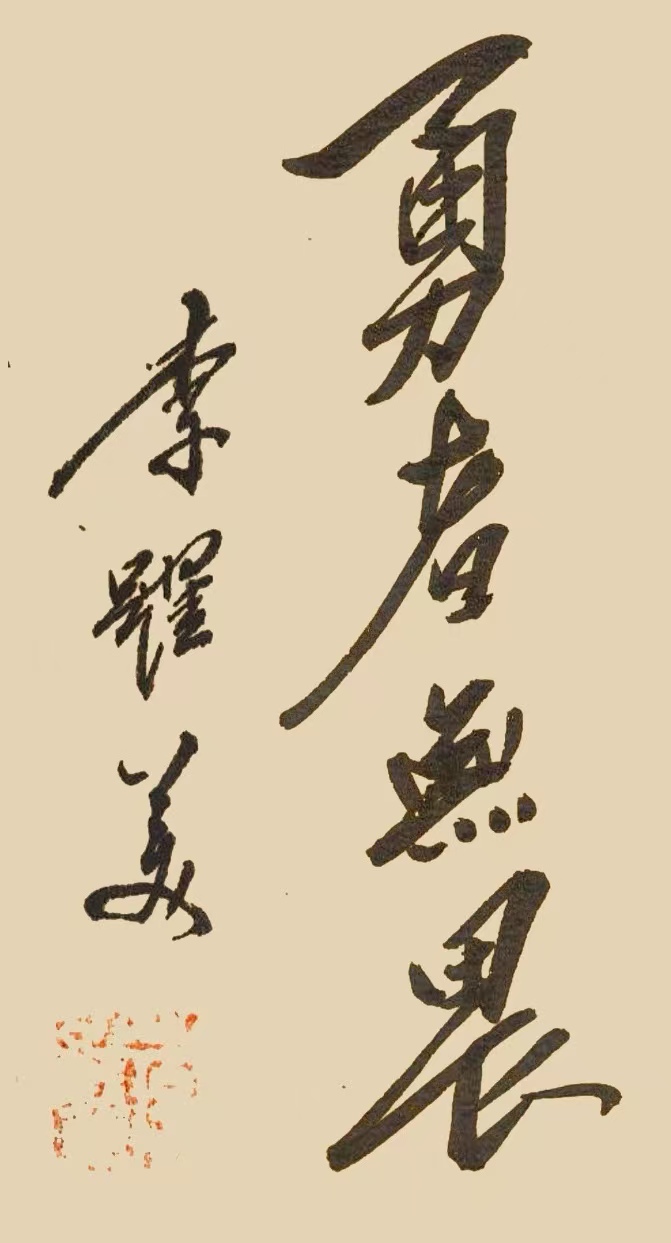 勇者無畏
李躍美